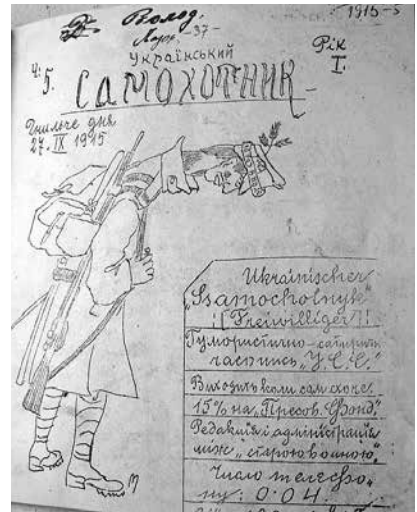 1915-5
Волод.
-37-
Український
Рік
I.
Ч: 5.
САМОХОТНИК
Гнильче дня
27. IX 1915
Ukrainischer
„Ssamochotnyk"
(Freiwilliger)!
Гумористично-сатирич.
часопись „У.С.С."
Виходить коли сам схоче.
15% на „Пресов. Фонд."
Редакція і адміністрація
між „стрілецькою
Число телефо-
ну: 0·04.